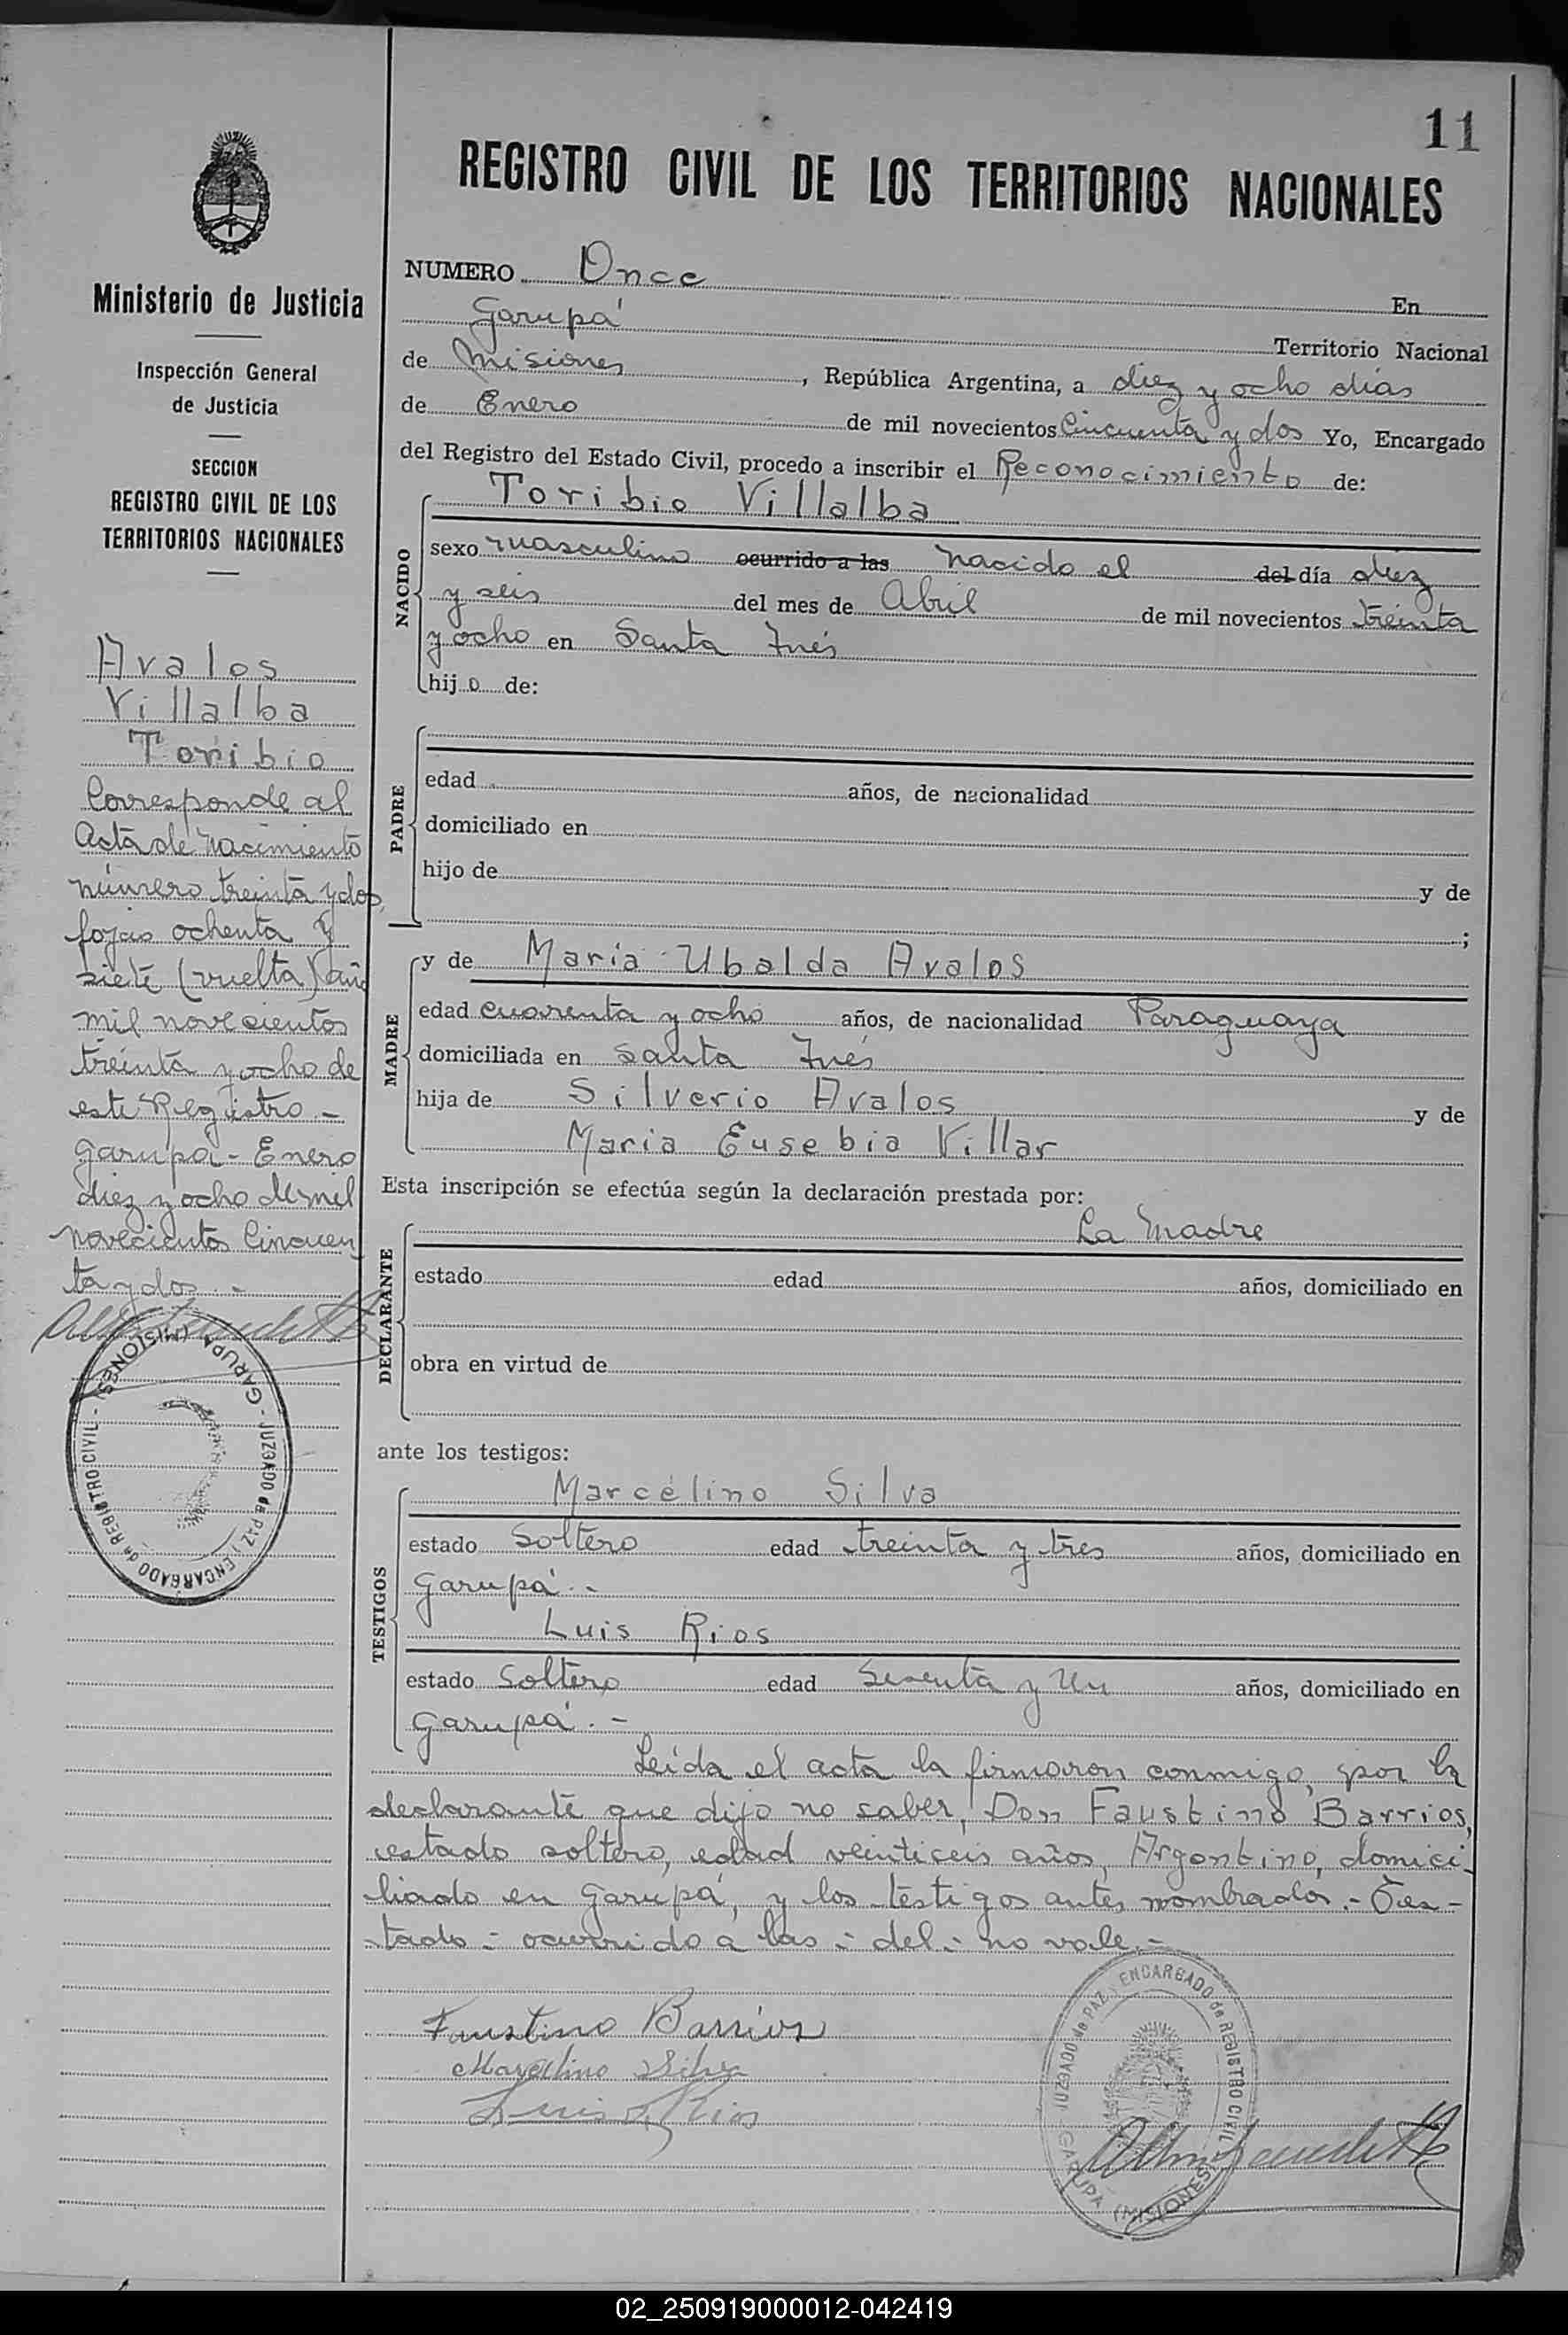 11
REGISTRO CIVIL DE LOS TERRITORIOS NACIONALES
Ministerio de Justicia
Inspección General
de Justicia
SECCION
REGISTRO CIVIL DE LOS
TERRITORIOS NACIONALES
Avalos
Villalba
Toribio
Corresponde al
Acta de nacimiento
número treinta y dos,
fojas ochenta y
siete (vuelta) año
mil novecientos
treinta y ocho de
este Registro.-
Garupá - Enero
diez y ocho de mil
novecientos cincuen
ta y dos.-
GARUPA (MISIONES) - JUZGADO de PAZ y ENCARGADO de REGISTRO CIVIL -
NUMERO Once En
Garupá Territorio Nacional
de Misiones, República Argentina, a diez y ocho días
de Enero de mil novecientos Cincuenta y dos Yo, Encargado
del Registro del Estado Civil, procedo a inscribir el Reconocimiento de:
Toribio Villalba
NACIDO
sexo masculino ocurrido a las nacido el del día diez
y seis del mes de Abril de mil novecientos treinta
y ocho en Santa Inés
hijo de:
PADRE
edad años, de nacionalidad
domiciliado en
hijo de y de
;
MADRE
y de Maria Ubalda Avalos
edad cuarenta y ocho años, de nacionalidad Paraguaya
domiciliada en Santa Inés
hija de Silverio Avalos y de
Maria Eusebia Villar
Esta inscripción se efectúa según la declaración prestada por:
La Madre
DECLARANTE
estado edad años, domiciliado en
obra en virtud de
ante los testigos:
TESTIGOS
Marcelino Silva
estado Soltero edad treinta y tres años, domiciliado en
Garupá.-
Luis Rios
estado Soltero edad Sesenta y Un años, domiciliado en
Garupá.-
Leída el acta la firmaron conmigo, por la
declarante que dijo no saber, Don Faustino Barrios,
estado soltero, edad veintiseis años, Argentino, domici-
liado en Garupá, y los testigos antes nombrados.- Tes-
tado: ocurrido a las: del: no vale.-
Faustino Barrios
Marcelino Silva
Luis Rios
GARUPA (MISIONES) JUZGADO de PAZ y ENCARGADO de REGISTRO CIVIL
02_250919000012-042419